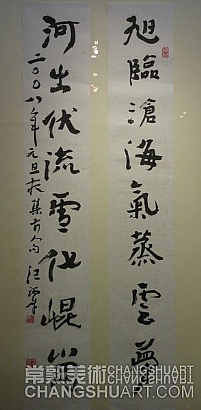 旭臨滄海氣蒸云夢
河出伏流雪化崐崙
二〇〇八年元旦夜集前人句 汪
常熟美術 CHANGSHUART
CHANGSHUART.COM